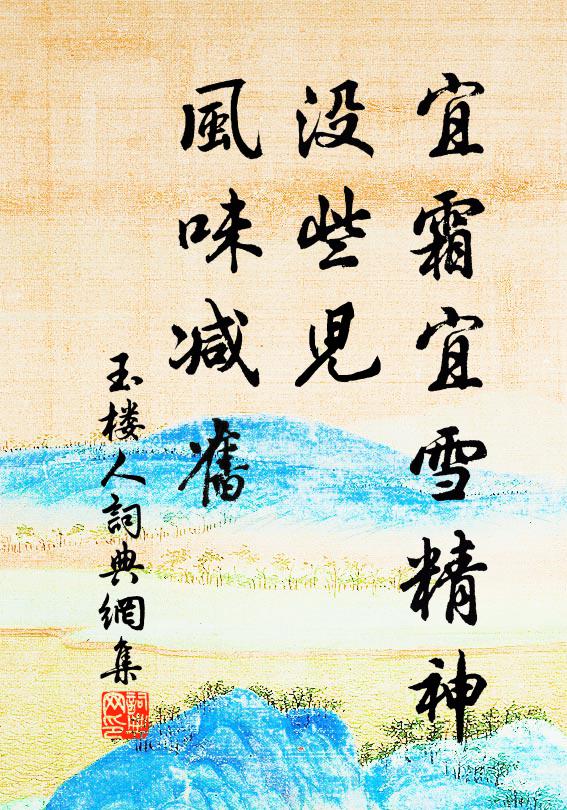 宜霜宜雪精神
没些兒
風味减舊
玉楼人詞典網集